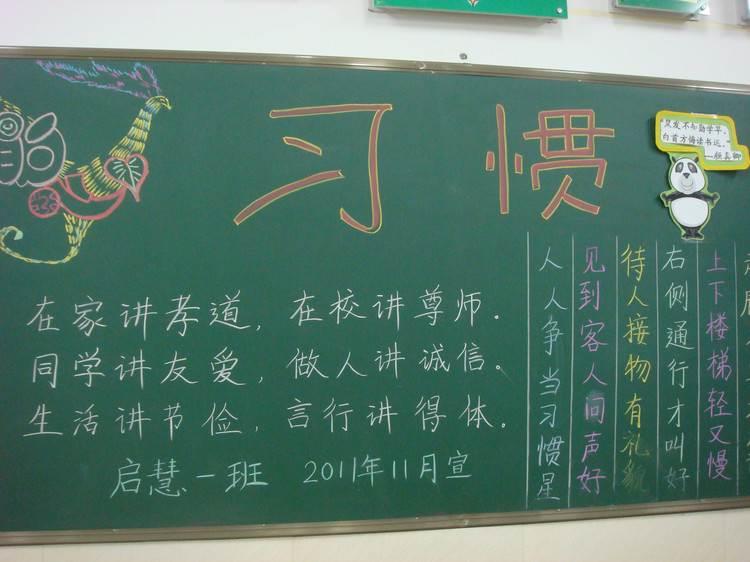 习惯
"黑发不知勤学早，
白首方悔读书迟。"
——颜真卿
在家讲孝道，在校讲尊师。
同学讲友爱，做人讲诚信。
生活讲节俭，言行讲得体。
启慧一班 2011年11月宣
上下楼梯轻又慢
右侧通行才叫好
待人接物有礼貌
见到客人问声好
人人争当习惯星